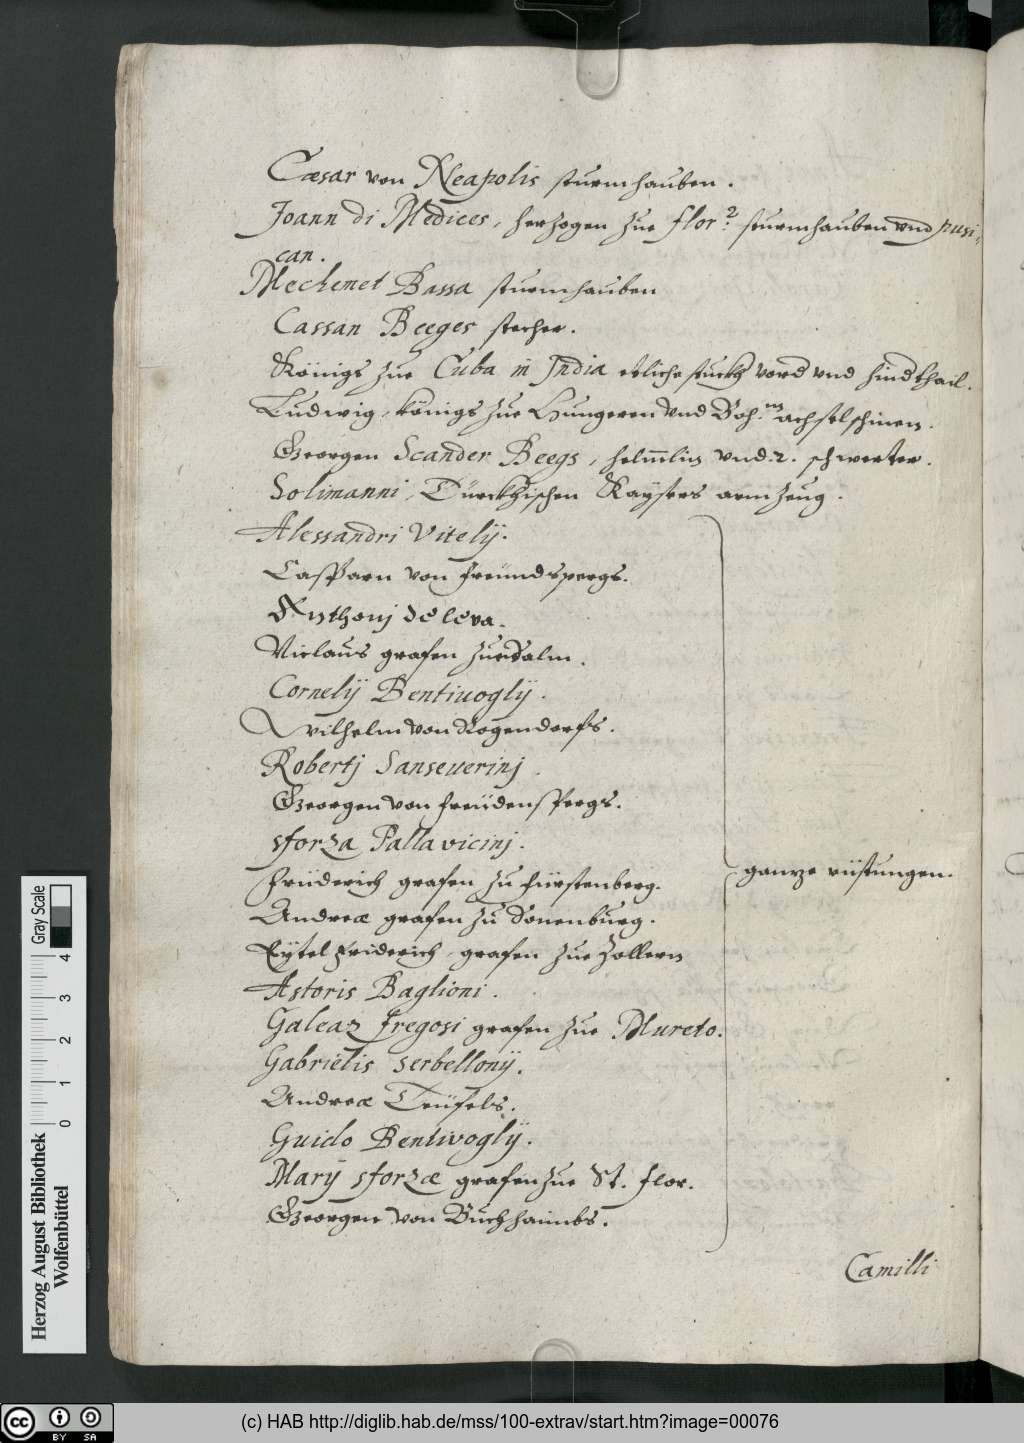 Cæsar von Neapolis sturmhauben.
Joann di Medices, herzogen zue flor.² sturmhauben vnd pusi,
can.
Mechemet Bassa sturmhauben
Cassan Beeges stecher.
Königs zue Cuba in India etliche stuckh vord vnd hindthail.
Ludwig, königs zue Hungeren vnd Boh.m achselschinen.
Georgen Scander Beegs, helmlin vnd .2. schwerter.
Solimanni, Türckhischen Kaysers armzeug.
Alessandri Vitelÿ.
Casparn von freündspergs.
Anthonj de leva.
Niclaus grafen zue Salm.
Cornelÿ Bentiuoglÿ.
Wilhelm von Rogendorfs.
Robertj Sanseuerinj.
Georgen von freüdenspergs.
sforza Pallavicinj.
ganze rüstungen.
Früderich grafen zu fürstenberg.
Andreæ grafen zu Sonenburg.
Eÿtel friderich, grafen zue Zollern
Astoris Baglioni.
Galeaz fregosi grafen zue Mureto.
Gabrielis serbellonÿ.
Andreæ Teüfels.
Guido Bentivoglÿ.
Marÿ sforzæ grafen zue St. flor.
Georgen von Buchhaimbs.
Camilli
Gray Scale
0 1 2 3 4
Herzog August Bibliothek
Wolfenbüttel
cc BY SA
(c) HAB http://diglib.hab.de/mss/100-extrav/start.htm?image=00076